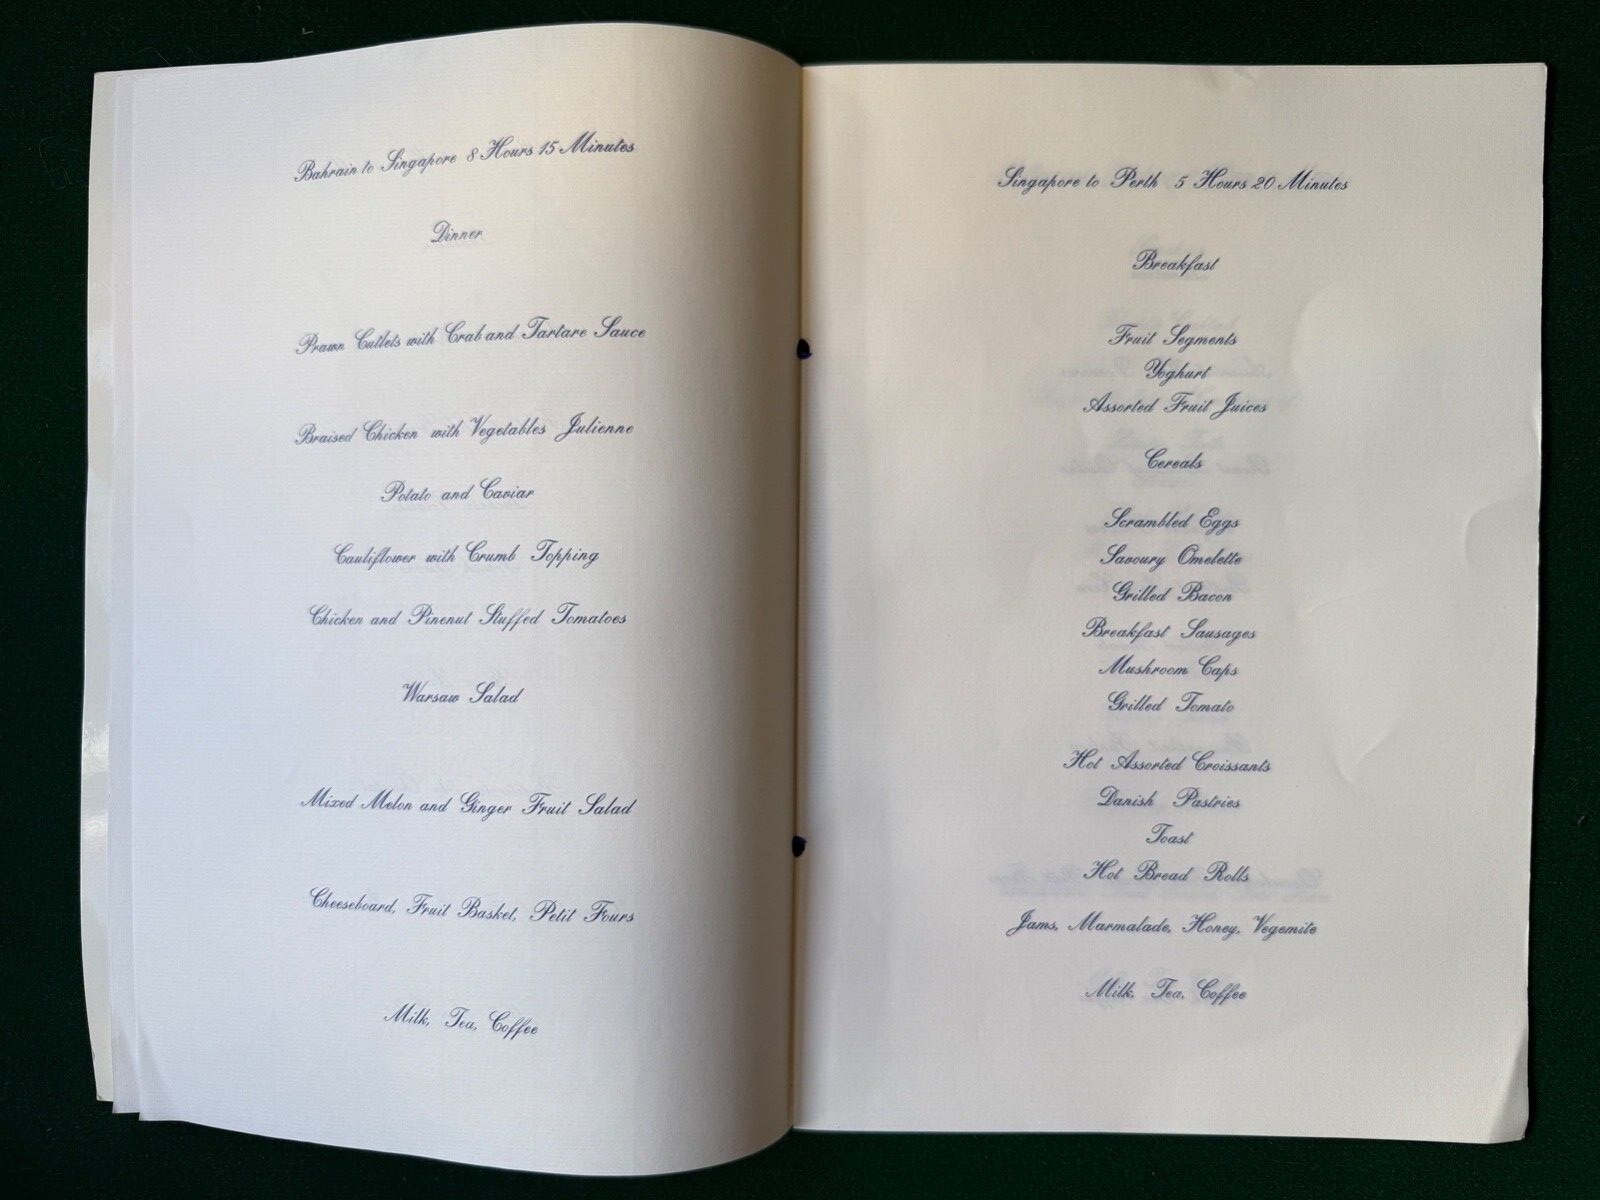 Bahrain to Singapore 8 Hours 15 Minutes
Dinner
Prawn Cutlets with Crab and Tartare Sauce
Braised Chicken with Vegetables Julienne
Potato and Caviar
Cauliflower with Crumb Topping
Chicken and Pinenut Stuffed Tomatoes
Warsaw Salad
Mixed Melon and Ginger Fruit Salad
Cheeseboard, Fruit Basket, Petit Fours
Milk, Tea, Coffee
Singapore to Perth 5 Hours 20 Minutes
Breakfast
Fruit Segments
Yoghurt
Assorted Fruit Juices
Cereals
Scrambled Eggs
Savoury Omelette
Grilled Bacon
Breakfast Sausages
Mushroom Caps
Grilled Tomato
Hot Assorted Croissants
Danish Pastries
Toast
Hot Bread Rolls
Jams, Marmalade, Honey, Vegemite
Milk, Tea, Coffee